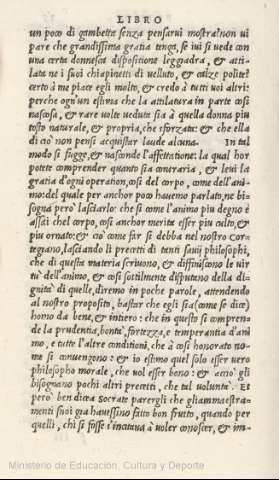 LIBRO
un poco di gambetta senza pensarui mostra? non ui
pare che grandissima gratia tenga, se iui si uede con
una certa donnesca dispositione leggiadra, & atti-
lata ne i suoi chiapinetti di ueluto, & calze polite?
certo à me piace egli molto, & credo à tutti uoi altri:
perche ogn'un estiua che la attilatura in parte cosi
nascosa, & rare uolte ueduta sia à quella donna piu
tosto naturale, & propria, che sforzata: & che ella
di cio non pensi acquistar laude alcuna. In tal
modo si fugge, & nasconde l'affettatione: la qual hor
potete comprender quanto sia contraria, & leui la
gratia d'ogni operation, cosi del corpo, come dell'ani-
mo: del quale per anchor poco hauemo parlato, ne bi-
sogna però lasciarlo: che si come l'animo piu degno è
assai chel corpo, cosi anchor merita esser piu culto, &
piu ornato: & cio come far si debba nel nostro Cor-
tegiano, lasciando li precetti di tanti sauij philosophi,
che di questa materia scriuono, & diffiniscono le uir
tù dell'animo, & cosi sottilmente disputano della di-
gnità di quelle, diremo in poche parole, attendendo
al nostro proposito, bastar che egli sia (come si dice)
homo da bene, & intiero: che in questo si compren-
de la prudentia, bontà, fortezza, e temperantia d'ani
mo, e tutte l'altre conditioni, che à cosi honorato no-
me si conuengono: & io estimo quel solo esser uero
philosopho morale, che uol esser bono: & acciò gli
bisognano pochi altri precetti, che tal uolunta. Et
però ben dicea Socrate parergli che gliammaestra-
menti suoi gia hauessino fatto bon frutto, quando per
quelli, chi si fosse s'incitaua à uoler conoscer, & im-
Ministerio de Educación, Cultura y Deporte